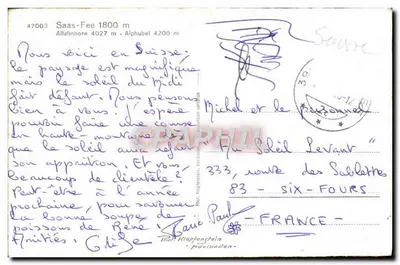 47003 Saas-Fee 1800 m
Allalinhorn 4027 m - Alphubel 4206 m
Nous voici en Suisse:
le paysage est magnifique
mais le soleil du Midi
fait défaut. Nous pensons
bien à vous. J'espère
pouvoir faire une course
en haute-montagne dès
que le soleil aura refait
son apparition. Et vous
beaucoup de clientèle?
Peut-être à l'année
prochaine, pour savourer
la bonne soupe de
poissons de René.
Amitiés:
Suisse
Michel et le personnel
"Au Soleil Levant"
333, route des Sablettes
83 - SIX-FOURS
- FRANCE -
Klopfenstein